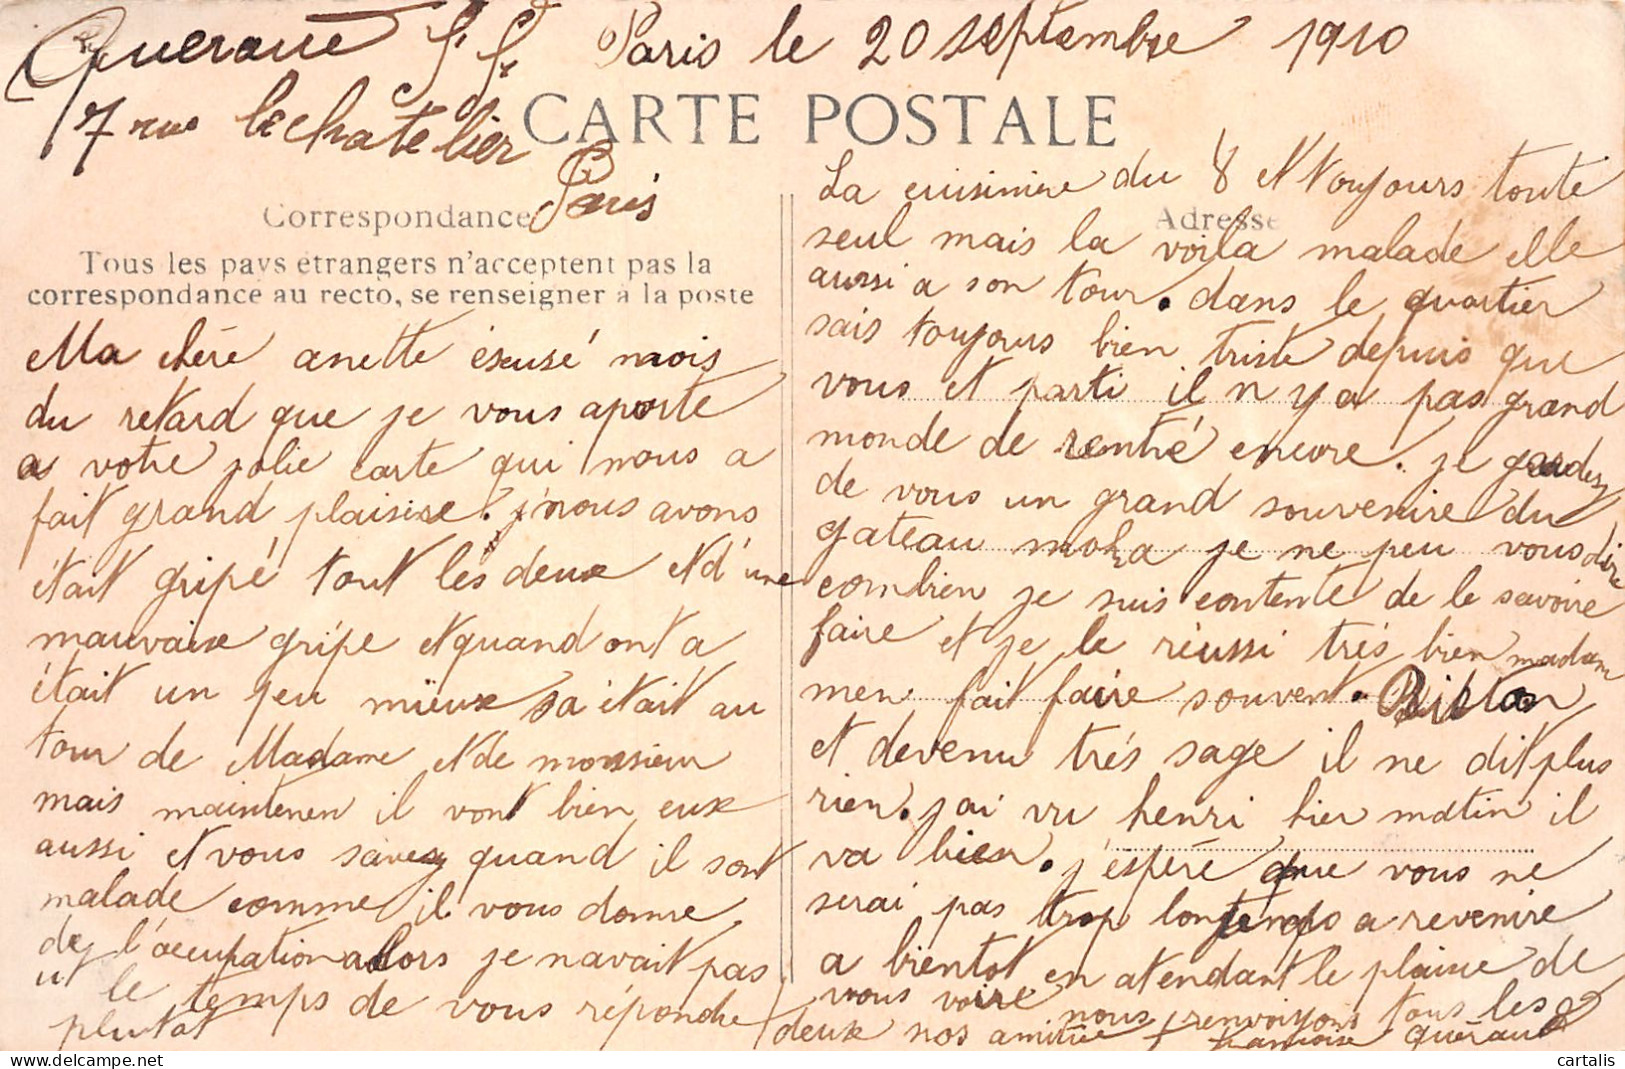 Queraué f f. Paris le 20 septembre 1910
7 rue lechatelier
Paris
CARTE POSTALE
Correspondance
Tous les pays étrangers n'acceptent pas la
correspondance au recto, se renseigner à la poste
Ma chère anette éxcusé mois
du retard que je vous aporte
a votre jolie carte qui nous a
fait grand plaisire. j'nous avons
était gripé tout les deux et d'une
mauvaise gripe et quand ont a
était un peu mieux sa était au
tour de Madame et de monsieur
mais maintenen il vont bien eux
aussi et vous savez quand il sont
malade comme il vous donne
de l'occupation alors je navait pas
ut le temps de vous répondre
plutat
Adresse
La cuisinière du 8 et toujours toute
seul mais la voila malade elle
aussi a son tour. dans le quartier
sais toujours bien triste depuis que
vous et parti il n y a pas grand
monde de rentré encore. je gardez
de vous un grand souvenire du
gateau moka je ne peu vous dire
combien je suis contente de le savoire
faire et je le réussi très bien madam
men fait faire souvent.
et devenu très sage il ne dit plus
rien. j ai vu henri hier matin il
va bien. j'espére que vous ne
serai pas trop longtemps a revenire
a bientot en atendant le plaisire de
vous voire nous renvoiyons tous les
deux nos amitiée francoise Quéraué
cartalis